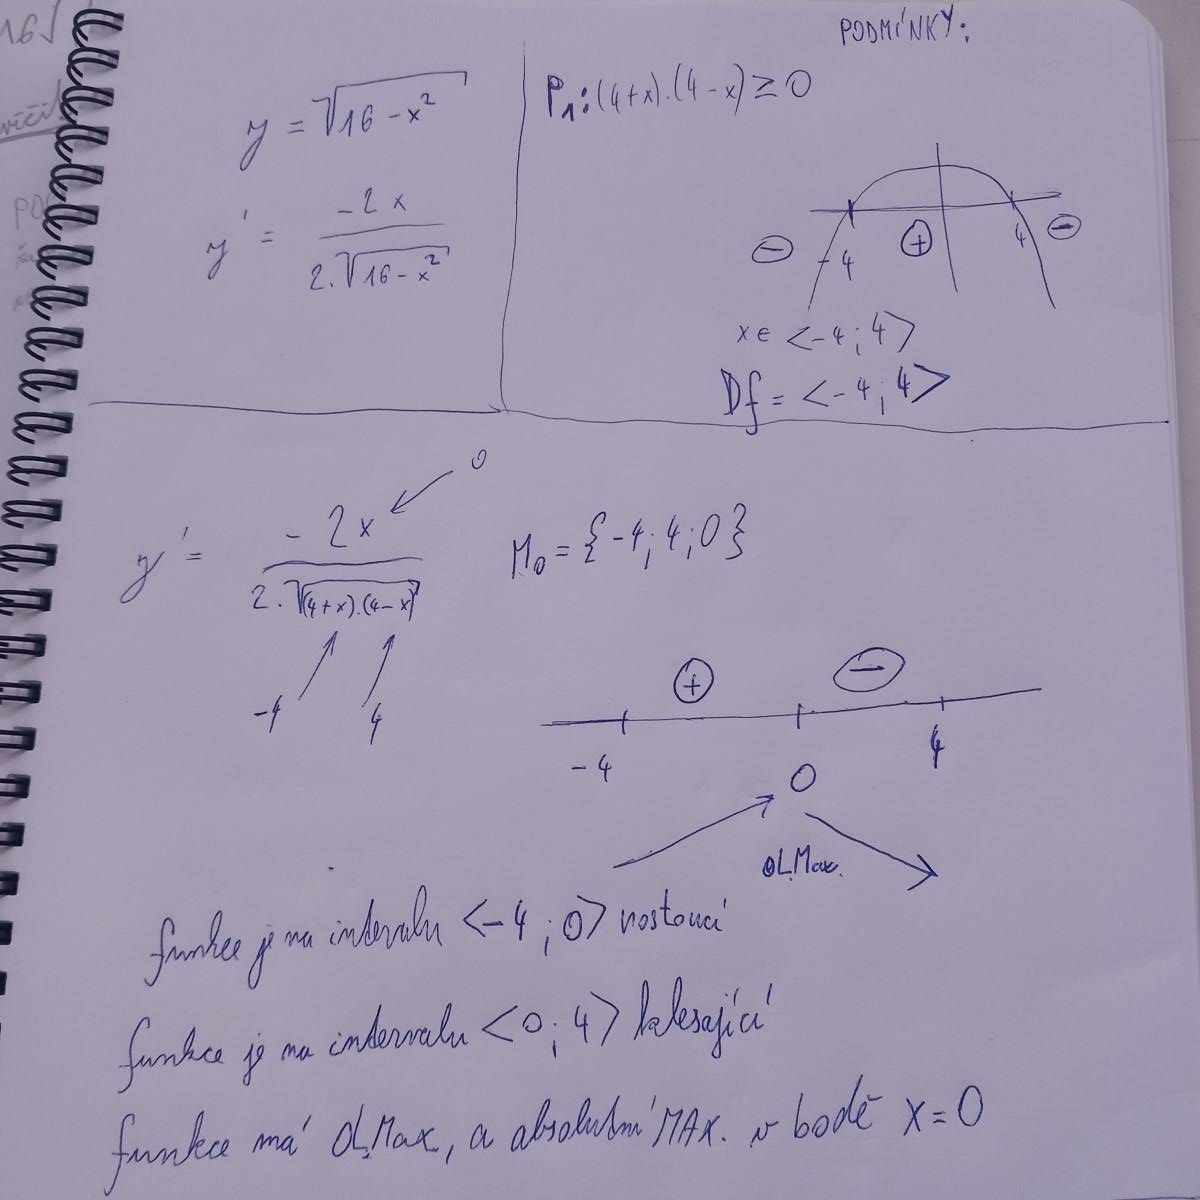 16
PODMÍNKY:
y = √16 - x²
P₁: (4+x).(4-x) ≥ 0
y' = -2x / 2.√16-x²
- + -
-4 4
x ∈ <-4; 4>
Df = <-4; 4>
0
y' = -2x / 2.√(4+x).(4-x)
M₀ = {-4; 4; 0}
-4 4
+ -
-4 0 4
OL.Max.
funkce je na intervalu <-4; 0> rostoucí
funkce je na intervalu <0; 4> klesající
funkce má OL.Max, a absolutní MAX. v bodě x = 0